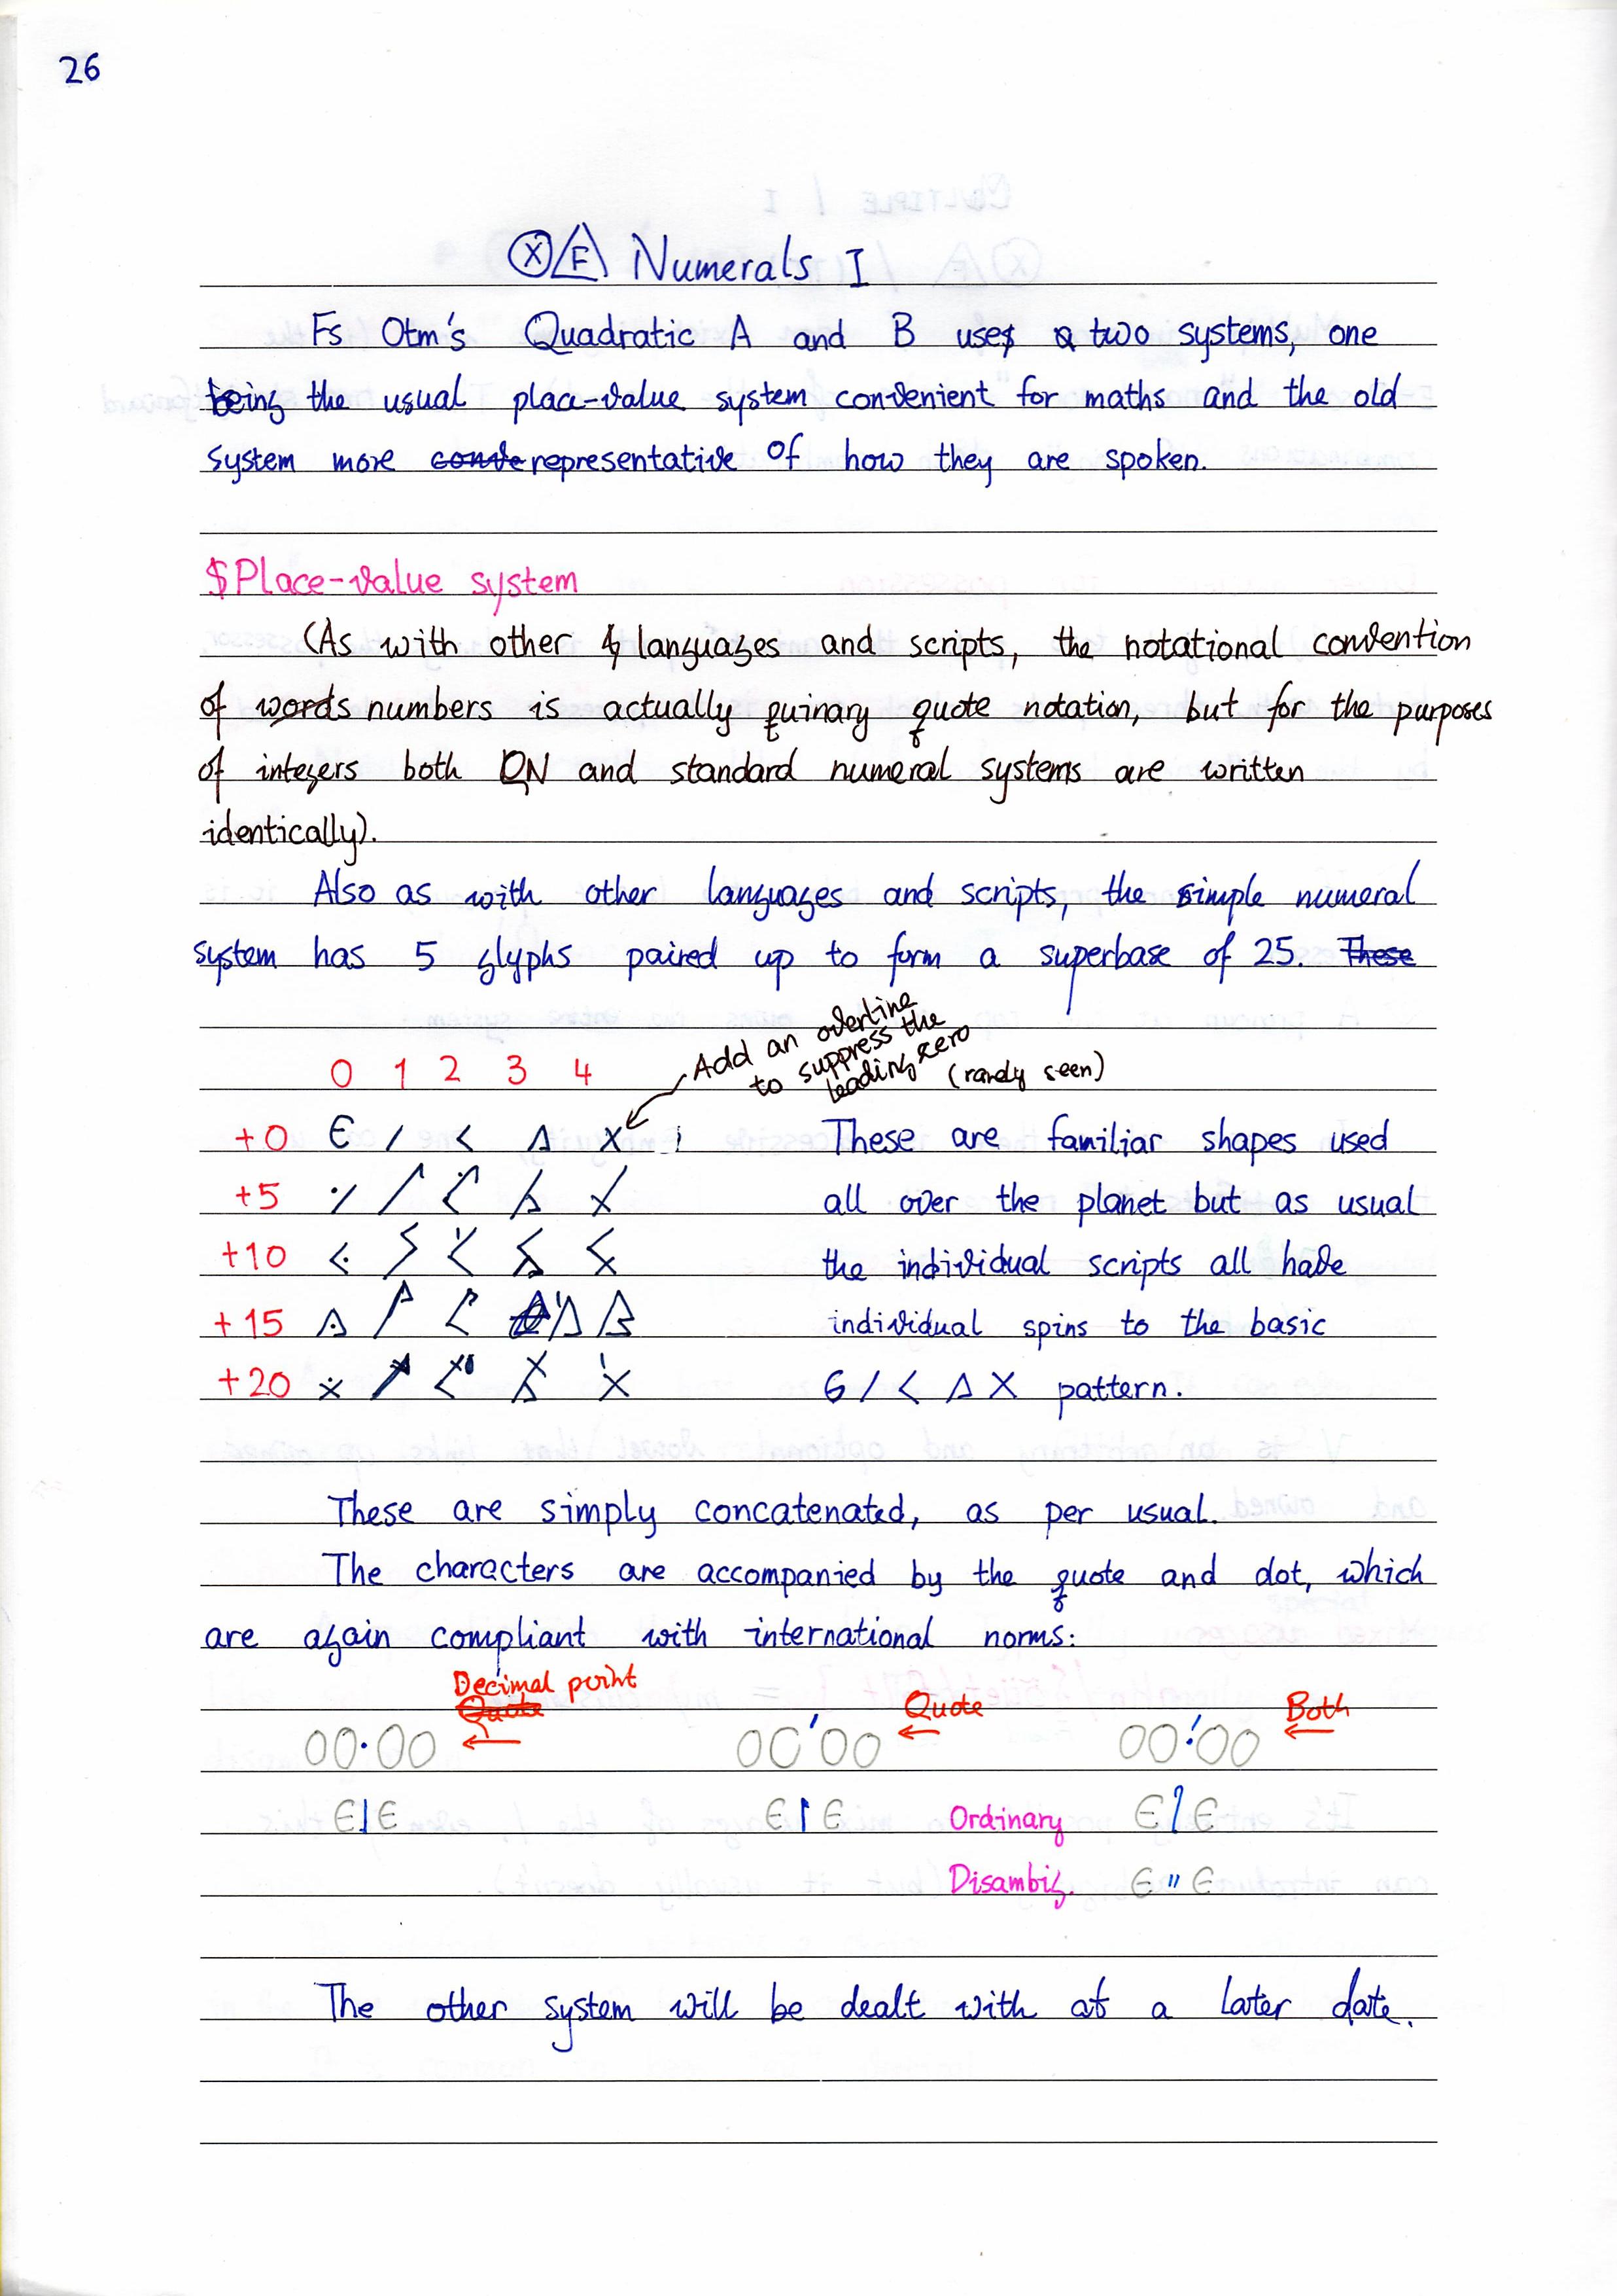 26
Ⓧ/F Numerals I
Fs Otm's Quadratic A and B uses two systems, one
being the usual place-value system convenient for maths and the old
system more conve representative of how they are spoken.
$Place-value system
(As with other languages and scripts, the notational convention
of words numbers is actually quinary quote notation, but for the purposes
of integers both QN and standard numeral systems are written
identically).
Also as with other languages and scripts, the simple numeral
system has 5 glyphs paired up to form a superbase of 25. These
Add an overline
to suppress the
leading zero
(rarely seen)
0 1 2 3 4
+0 Є / < Δ X
These are familiar shapes used
+5
all over the planet but as usual
+10
the individual scripts all have
+15
individual spins to the basic
+20
6 / < Δ X pattern.
These are simply concatenated, as per usual.
The characters are accompanied by the quote and dot, which
are again compliant with international norms:
Decimal point
Quote
Quote
Both
00·00 00'00 00!00
Є|Є Є↾Є Ordinary Є Є
Disambig. Є " Є
The other system will be dealt with at a later date.